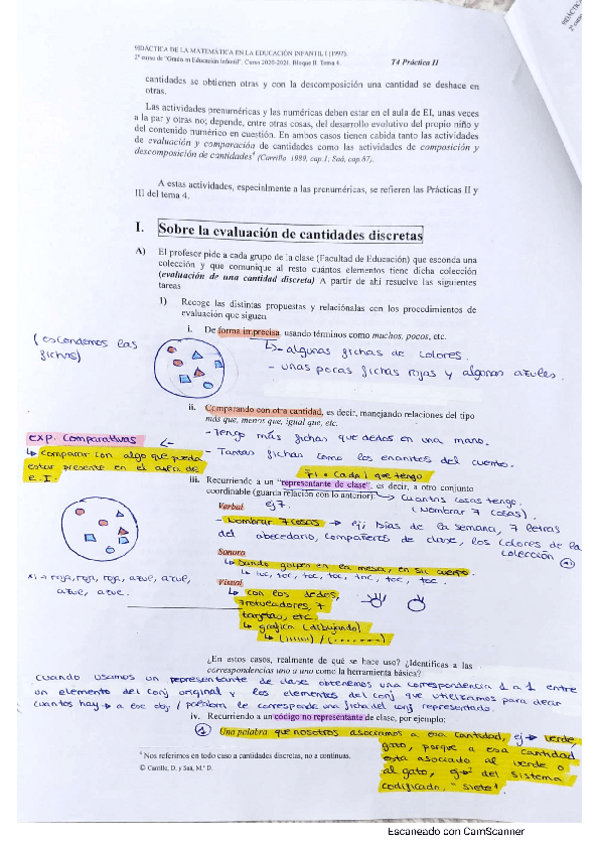 DIDÁCTICA DE LA MATEMÁTICA EN LA EDUCACIÓN INFANTIL I (1997).
2º curso de "Grado en Educación Infantil". Curso 2020-2021. Bloque II. Tema 4. T4 Práctica II
cantidades se obtienen otras y con la descomposición una cantidad se deshace en
otras.
Las actividades prenuméricas y las numéricas deben estar en el aula de EI, unas veces
a la par y otras no; depende, entre otras cosas, del desarrollo evolutivo del propio niño y
del contenido numérico en cuestión. En ambos casos tienen cabida tanto las actividades
de evaluación y comparación de cantidades como las actividades de composición y
descomposición de cantidades⁴ (Carrillo 1989, cap.1; Saá, cap.87).
A estas actividades, especialmente a las prenuméricas, se refieren las Prácticas II y
III del tema 4.
I. Sobre la evaluación de cantidades discretas
A) El profesor pide a cada grupo de la clase (Facultad de Educación) que esconda una
colección y que comunique al resto cuántos elementos tiene dicha colección
(evaluación de una cantidad discreta) A partir de ahí resuelve las siguientes
tareas
1) Recoge las distintas propuestas y relaciónalas con los procedimientos de
evaluación que siguen
i. De forma imprecisa, usando términos como muchos, pocos, etc.
(escondemos las
fichas)
- algunas fichas de colores.
- unas pocas fichas rojas y algunas azules.
ii. Comparando con otra cantidad, es decir, manejando relaciones del tipo
más que, menos que, igual que, etc.
exp. comparativas
- Tengo más fichas que dedos en una mano.
↳ comparar con algo que pueda
estar presente en el aula de
E.I.
- Tantas fichas como los enanitos del cuento.
iii. Recurriendo a un "representante de clase", es decir, a otro conjunto
coordinable (guarda relación con lo anterior). → Cuantas cosas tengo.
(Nombrar 7 cosas)
Verbal ej 7.
- Nombrar 7 cosas → ej: días de la semana, 7 letras
del abecedario, compañeros de clase, los colores de la
colección
Sonora
↳ Dando golpes en la mesa, en su cuerpo.
↳ toc, toc, toc, toc, toc, toc, toc.
→ roja, roja, roja, azul, azul,
azul, azul.
Visual
↳ con los dedos,
7 rotuladores, 7
tarjetas, etc.
↳ grafica (dibujando)
↳ (ııııııı) / (.......)
¿En estos casos, realmente de qué se hace uso? ¿Identificas a las
correspondencias uno a uno como la herramienta básica?
cuando usamos un representante de clase obtenemos una correspondencia 1 a 1 entre
un elemento del conj original y los elementos del conj que utilizamos para decir
cuantos hay → a ese obj / palabra le corresponde una ficha del conj representado.
iv. Recurriendo a un código no representante de clase, por ejemplo:
① Una palabra que nosotros asociamos a esa cantidad, ej → verde,
gato, porque a esa cantidad
esta asociado al verde o
al gato, del sistema
codificado, "siete".
⁴ Nos referimos en todo caso a cantidades discretas, no a continuas.
© Carrillo, D. y Saá, M.ª D.
Escaneado con CamScanner